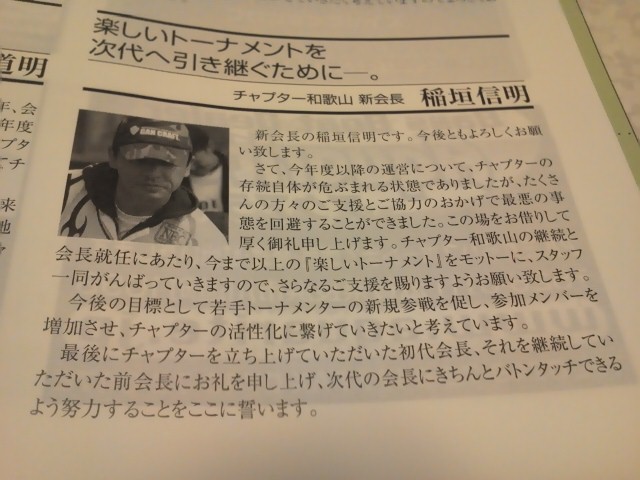 楽しいトーナメントを
次代へ引き継ぐために─。
チャプター和歌山 新会長 稲垣信明
新会長の稲垣信明です。今後ともよろしくお願
い致します。
さて、今年度以降の運営について、チャプターの
存続自体が危ぶまれる状態でありましたが、たくさ
んの方々のご支援とご協力のおかげで最悪の事
態を回避することができました。この場をお借りして
厚く御礼申し上げます。チャプター和歌山の継続と
会長就任にあたり、今まで以上の『楽しいトーナメント』をモットーに、スタッフ
一同がんばっていきますので、さらなるご支援を賜りますようお願い致します。
今後の目標として若手トーナメンターの新規参戦を促し、参加メンバーを
増加させ、チャプターの活性化に繋げていきたいと考えています。
最後にチャプターを立ち上げていただいた初代会長、それを継続してい
ただいた前会長にお礼を申し上げ、次代の会長にきちんとバトンタッチできる
よう努力することをここに誓います。
道明
年、会
年度
プタ
てチ
来
地